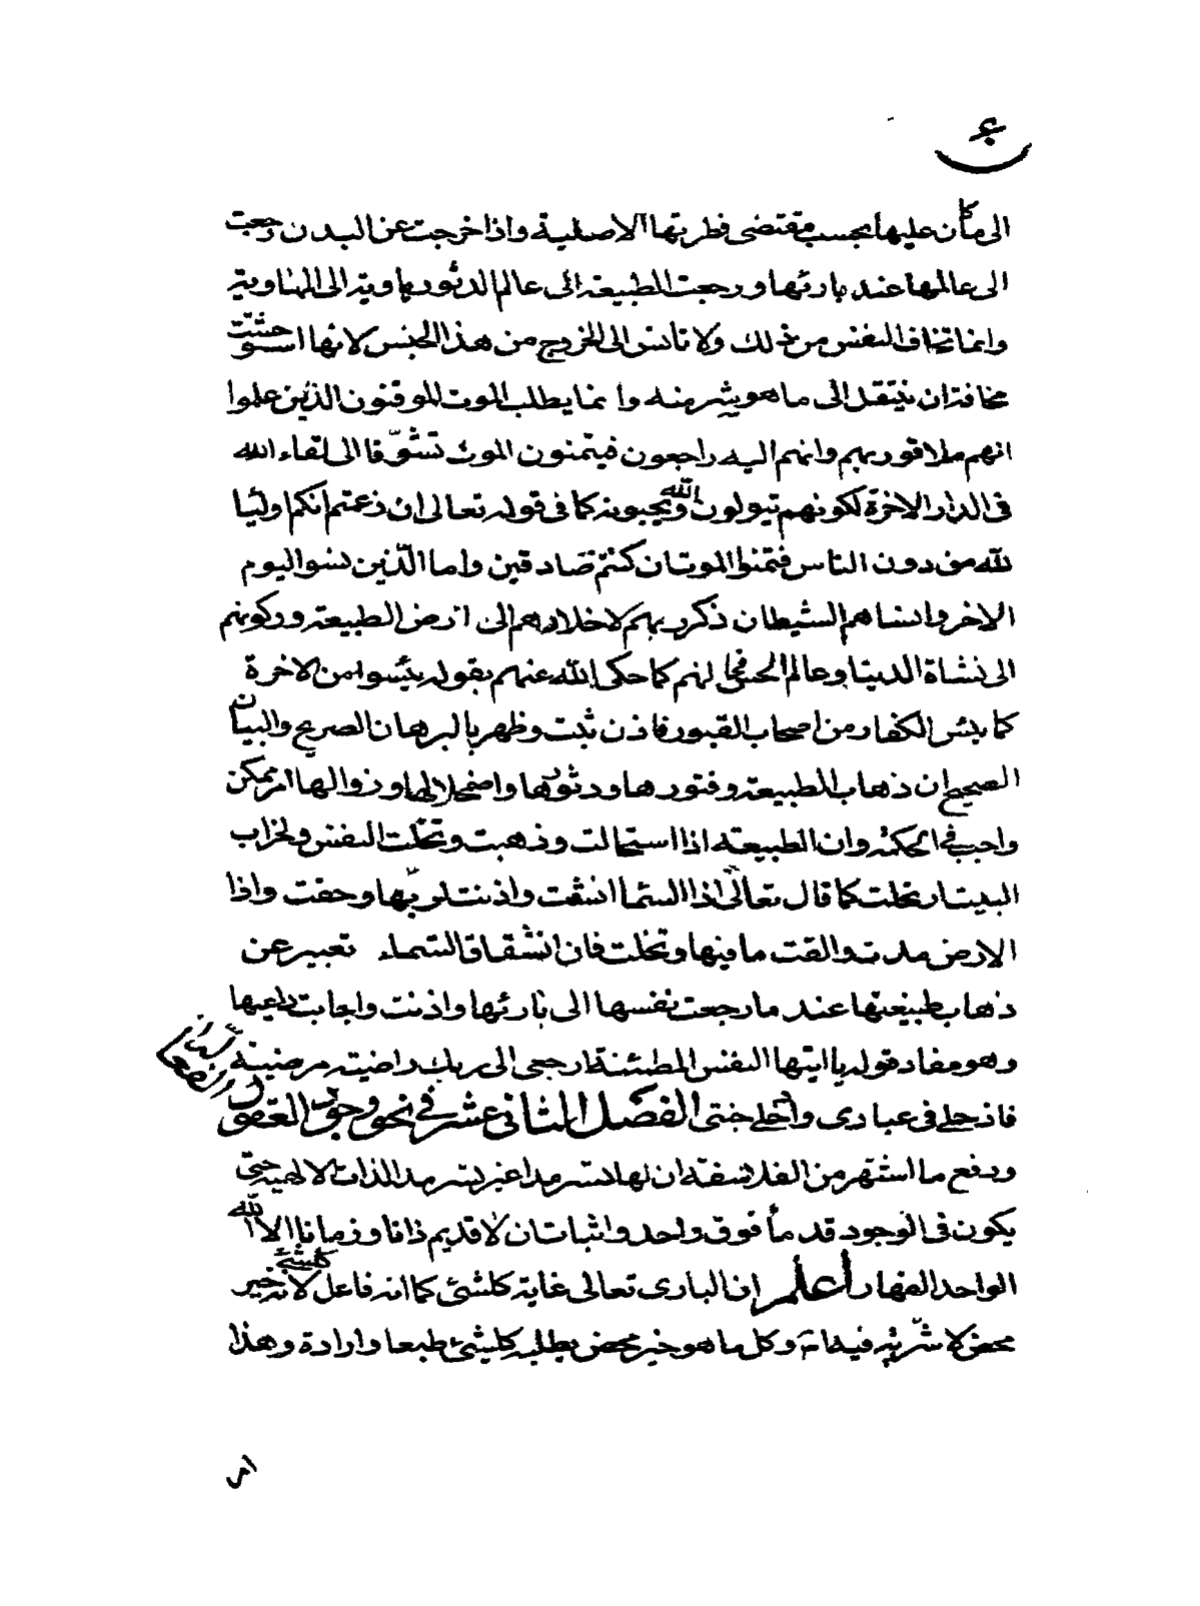 الى ما كان عليها بحسب مقتضى فطرتها الاصلية واذا خرجت عن البدن رجعت
الى عالمها عند بارئها ورجعت الطبيعة الى عالم الدثور هاوية الى الهاوية
وانما تخاف النفس من ذلك ولا تانس الى الخروج من هذا الحبس لانها استوحشت
مخافة ان ينتقل الى ما هو شر منه وانما يطلب الموت الموقنون الذين علموا
انهم ملاقو ربهم وانهم اليه راجعون فيتمنون الموت تشوّقا الى لقاء الله
فى الدار الاخرة لكونهم يتولون الله ويحبونه كما فى قوله تعالى ان زعمتم انكم اوليا
لله من دون الناس فتمنوا الموت ان كنتم صادقين واما الّذين نسوا اليوم
الاخر وانساهم الشيطان ذكر ربهم لاخلادهم الى ارض الطبيعة وركونهم
الى نشاة الدنيا وعالم الحس فحالهم كما حكى الله عنهم بقوله يئسوا من الاخرة
كما يئس الكفار من اصحاب القبور فاذن ثبت وظهر بالبرهان الصريح والبيان
الصحيح ان ذهاب الطبيعة وفتورها ودثورها واضمحلالها وزوالها امر ممكن
واجب فى الحكمة وان الطبيعة اذا استحالت وذهبت وتخلت النفس ولخراب
البيت ارتحلت كما قال تعالى اذا السماء انشقت واذنت لربّها وحقت واذا
الارض مدت والقت ما فيها وتخلت فان انشقاق السماء تعبير عن
ذهاب طبيعتها عند ما رجعت نفسها الى بارئها واذنت واجابت داعيها
وهو مفاد قوله يا ايتها النفس المطمئنة ارجعى الى ربك راضية مرضية
فادخلى فى عبادى وادخلى جنتى الفصل الثانى عشر فى نحو وجود العقول
ودفع ما اشتهر من الفلاسفة ان لها سرمدا غير سرمد الذات الالهية حتى
يكون فى الوجود قديما فوق واحد واثبات ان لا قديم ذاتا وزمانا الا الله
الواحد القهار أعلم ان البارى تعالى غاية كلشئ كما انه فاعل كلشئ لانه خير
محض لا شرّية فيه وكل ما هو خير محض يطلبه كلشئ طبعا وارادة وهذا
امر